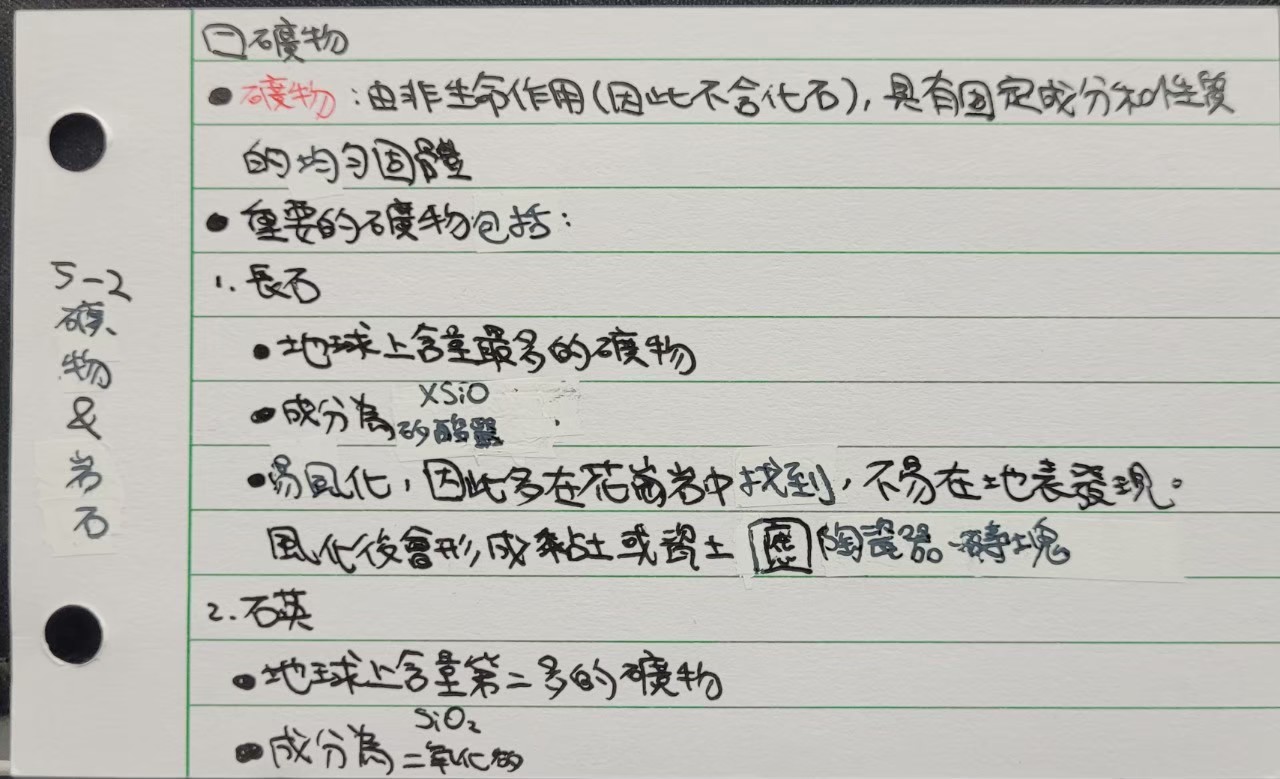 5-2
礦物&岩石
㊁礦物
●礦物:由非生命作用(因此不含化石),具有固定成分和性質
的均勻固體
●重要的礦物包括:
1.長石
●地球上含量最多的礦物
●成分為XSiO
矽酸鹽
●易風化,因此多在花崗岩中找到,不易在地表發現。
風化後會形成黏土或瓷土 應 陶瓷器、磚塊
2.石英
●地球上含量第二多的礦物
●成分為SiO₂
二氧化矽